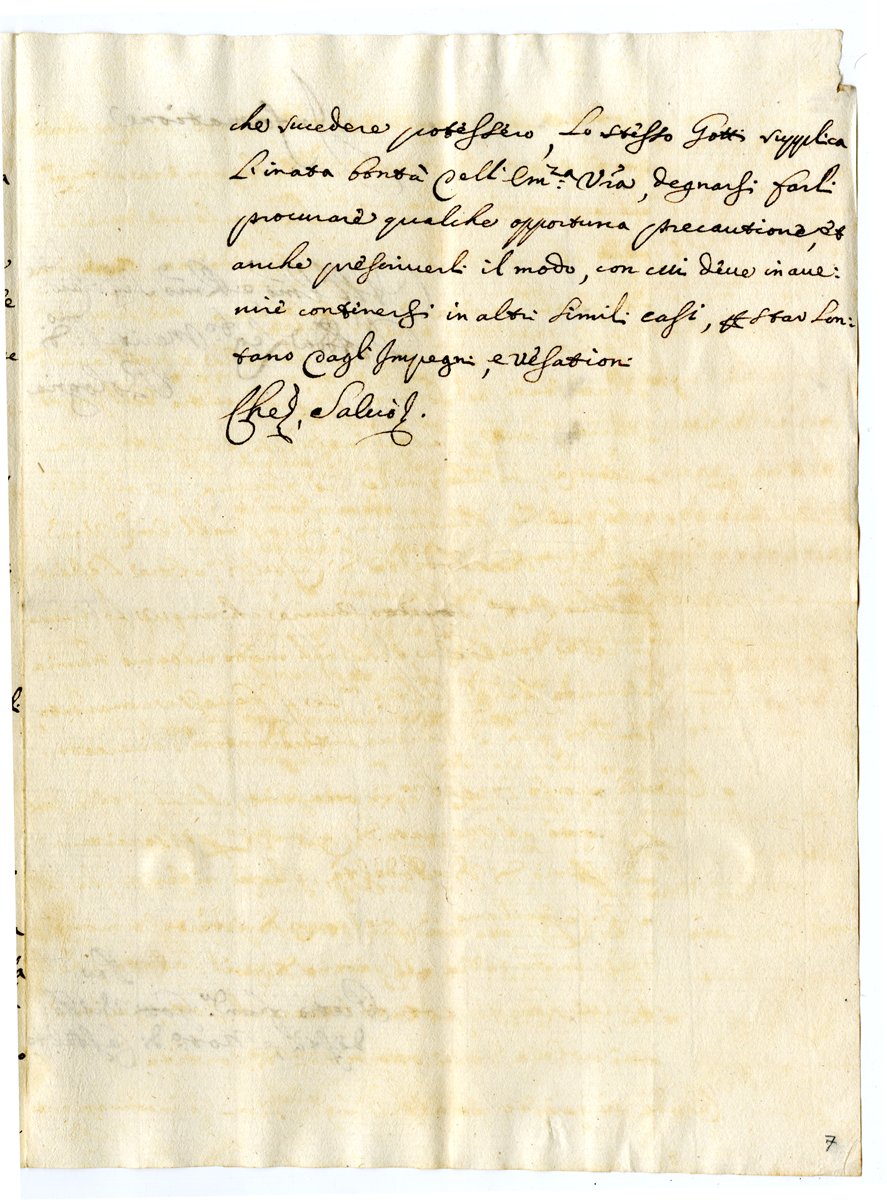 che sucedere potessero, Lo stesso Gotti supplica
L'inata bontà dell'Em.za Vra, degnarsi farli
procurare qualche opportuna precautione, et
anche prescriverli il modo, con cui deve in ave:
nire continersi in altri simili casi, star Lon:
tano dagli Impegni, e vesationi
Che,
7